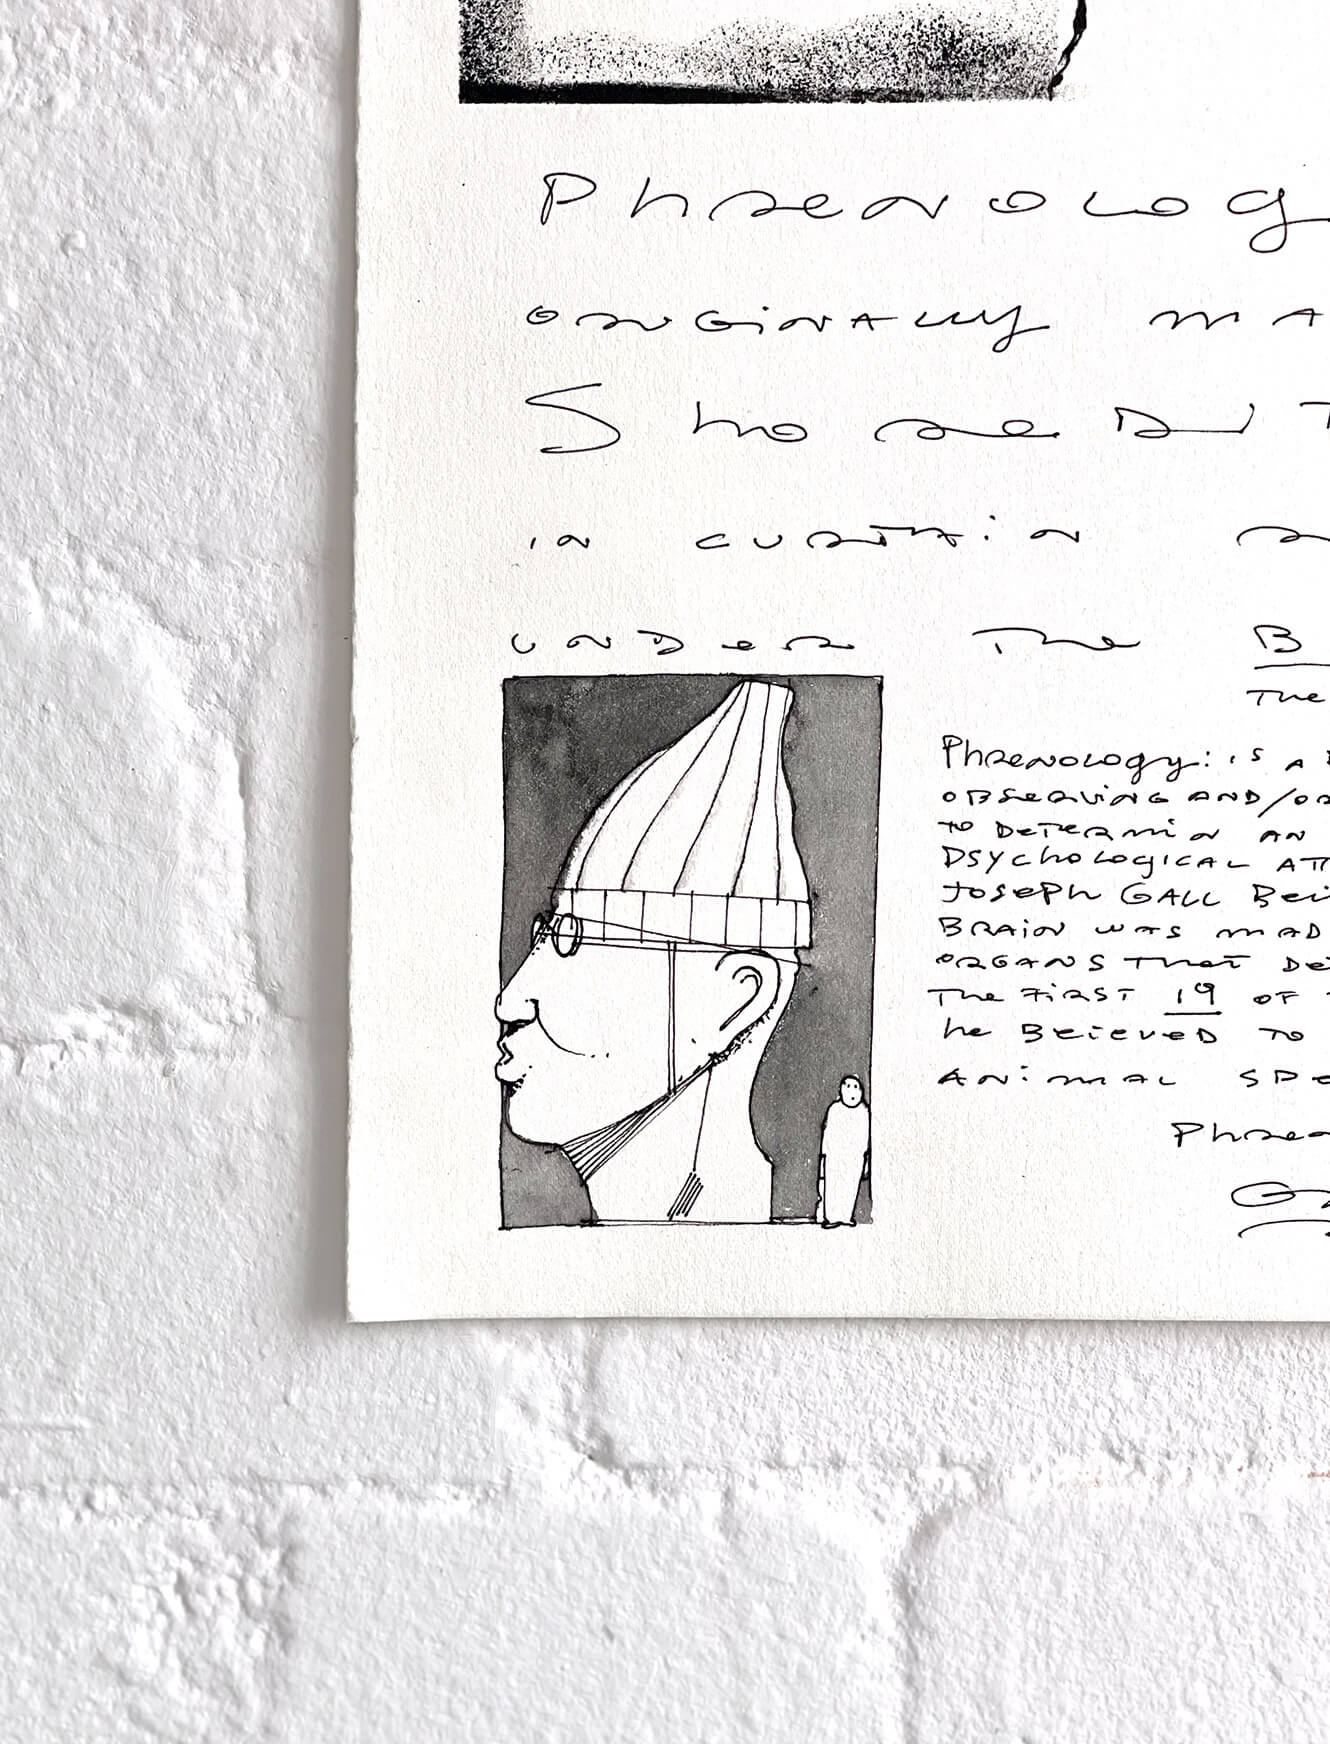 Phrenolog
originally ma
Shoredit
in curtain
under The B
The
Phrenology: is a
observing and/or
to determin an
psychological att
Joseph Gall Bei
Brain was mad
organs that de
The first 19 of
he Beieved to
animal spe
Phren